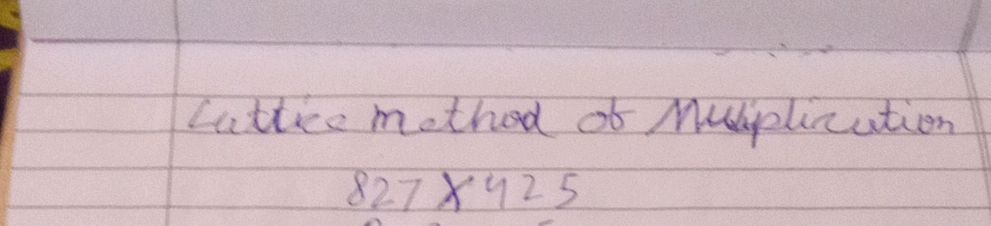 Lattice method of Multiplication
827 X 425